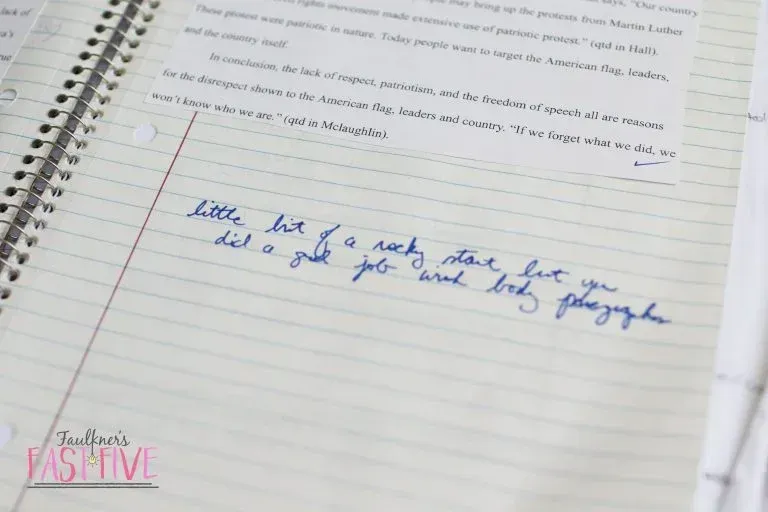 lack of
says, "Our country
rights movement made extensive use of patriotic protest." (qtd in Hall).
may bring up the protests from Martin Luther
These protest were patriotic in nature. Today people want to target the American flag, leaders,
and the country itself.
In conclusion, the lack of respect, patriotism, and the freedom of speech all are reasons
for the disrespect shown to the American flag, leaders and country. "If we forget what we did, we
won't know who we are." (qtd in Mclaughlin).
little bit of a rocky start but you
did a good job with body paragraphs
Faulkner's
FAST FIVE